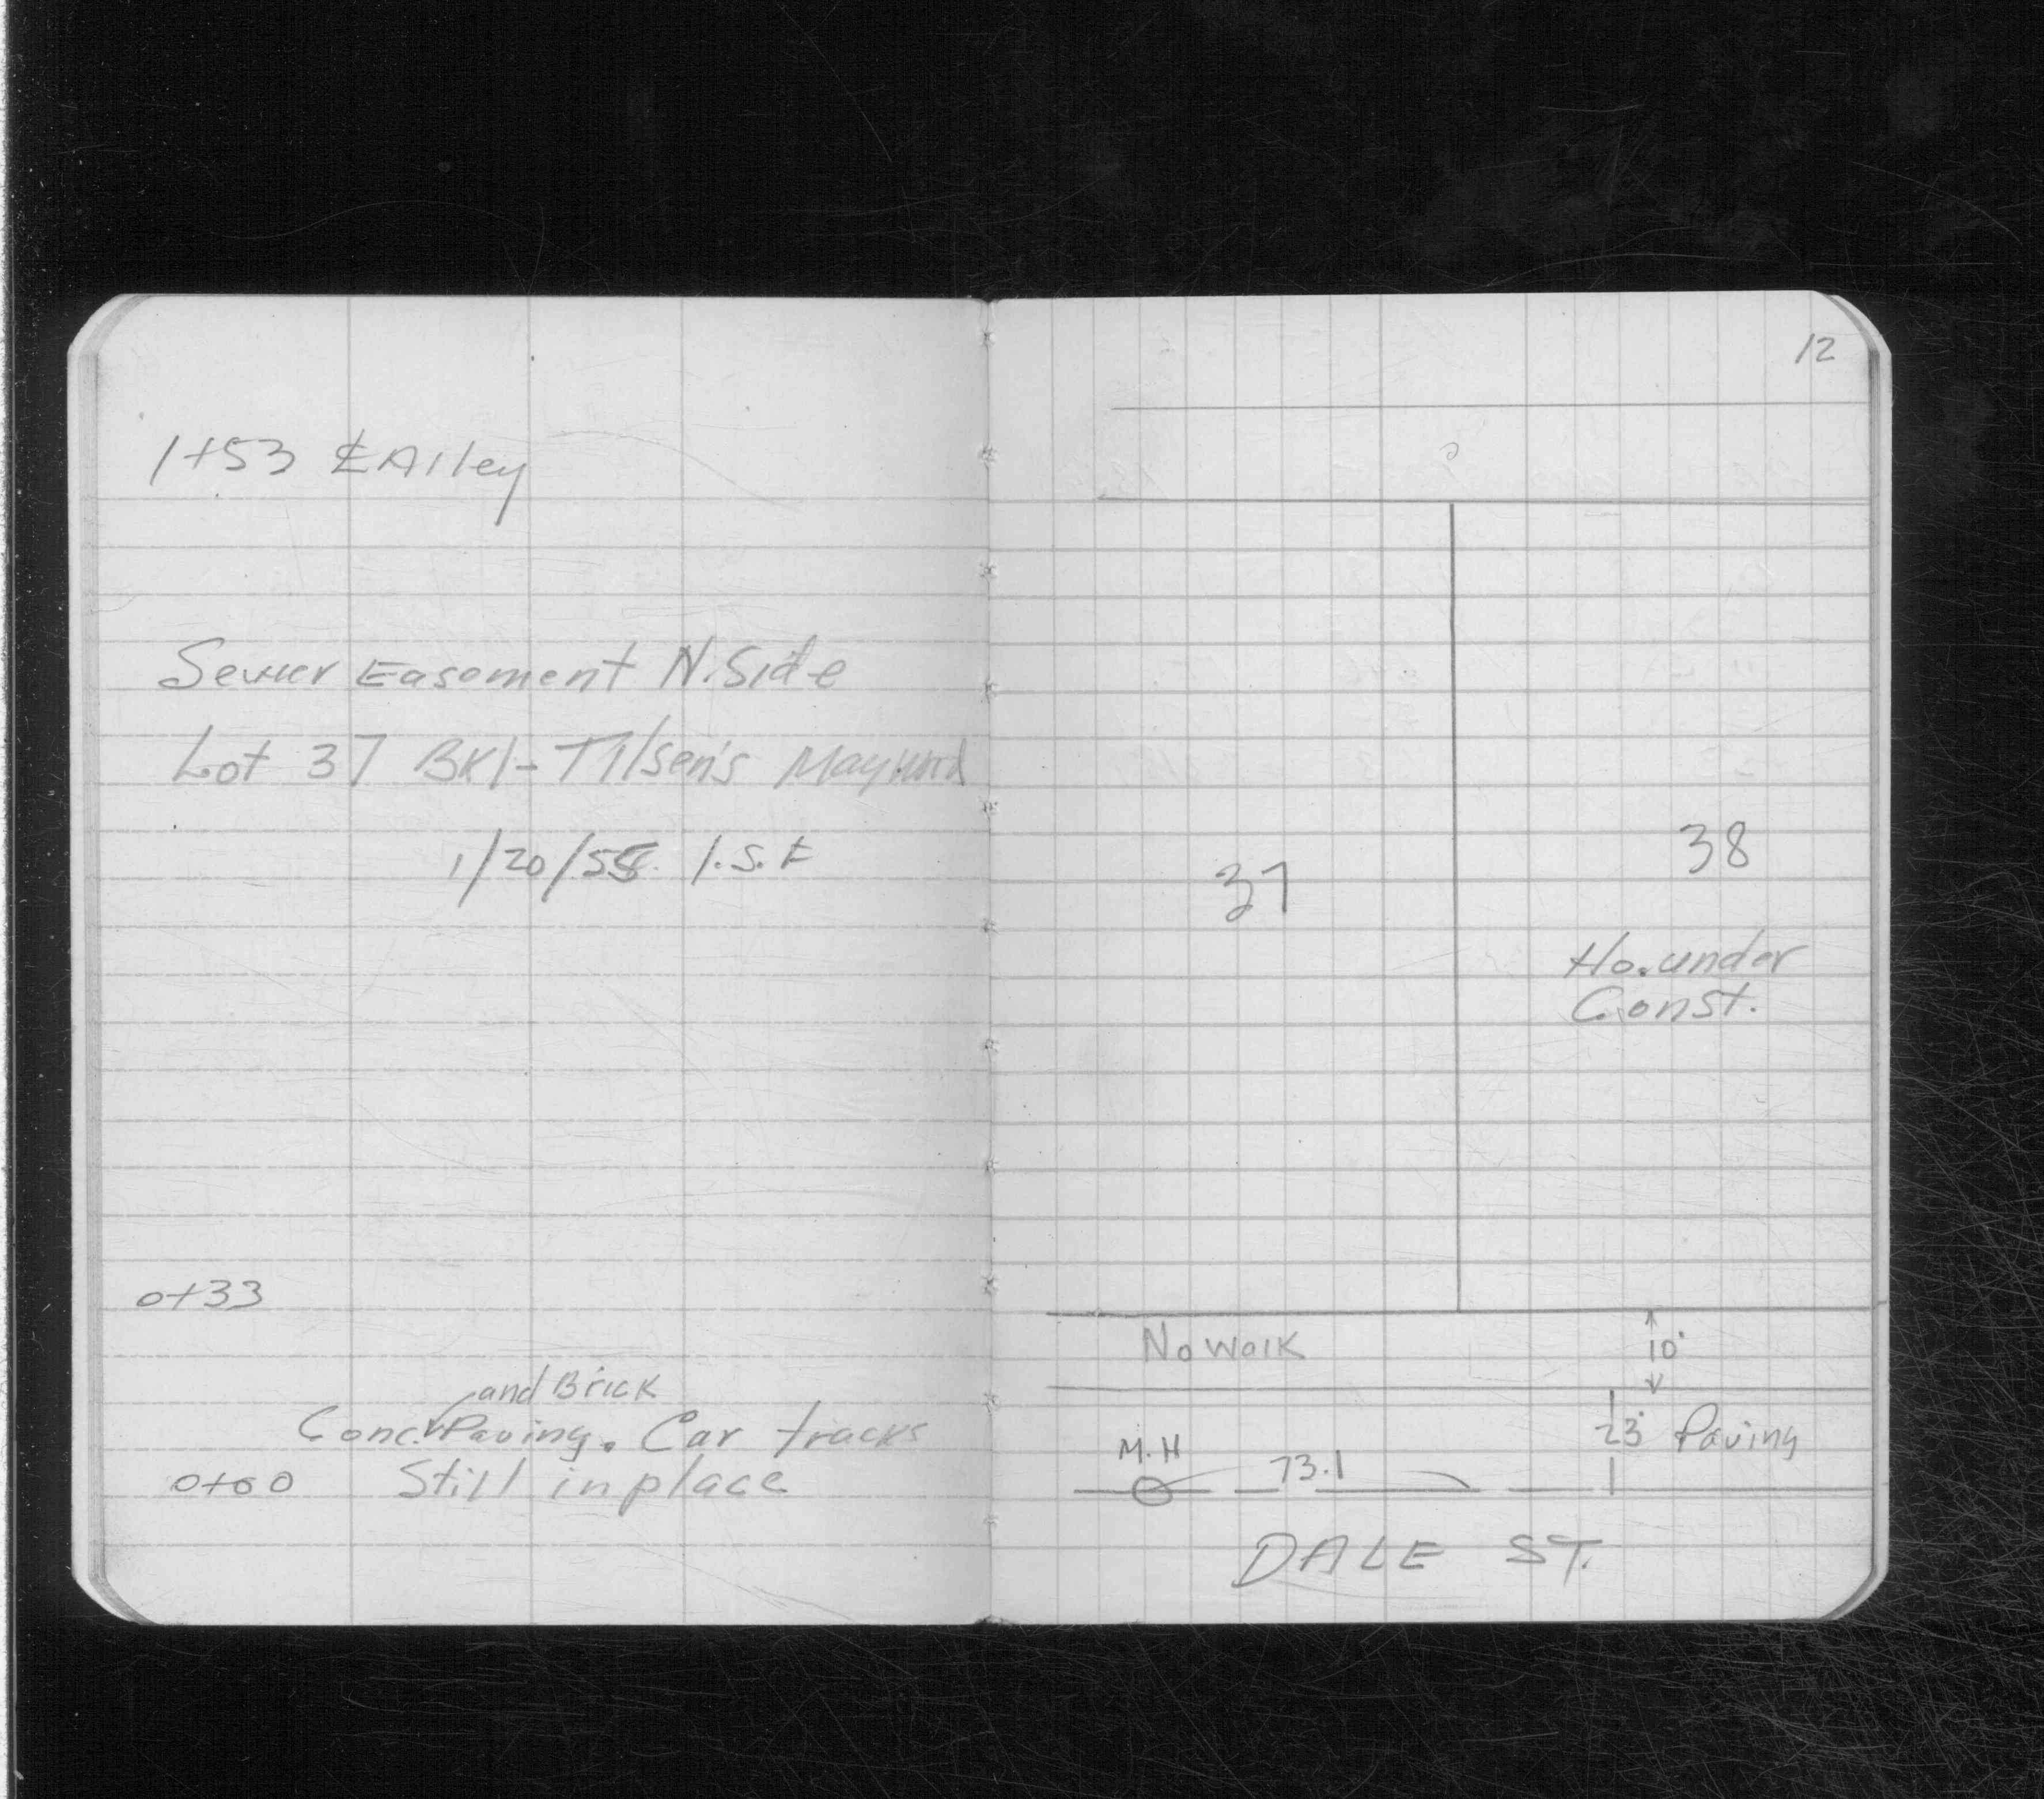 12
1+53 ℄ Alley
Sewer Easement N. Side
Lot 37 BK1- Tilsen's
1/20/58 I.S.E
37
38
Ho. under
Const.
0+33
No walk
10'
and Brick
Conc. Paving. Car tracks
0+00 Still in place
M.H
73.1
23' Paving
DALE ST.